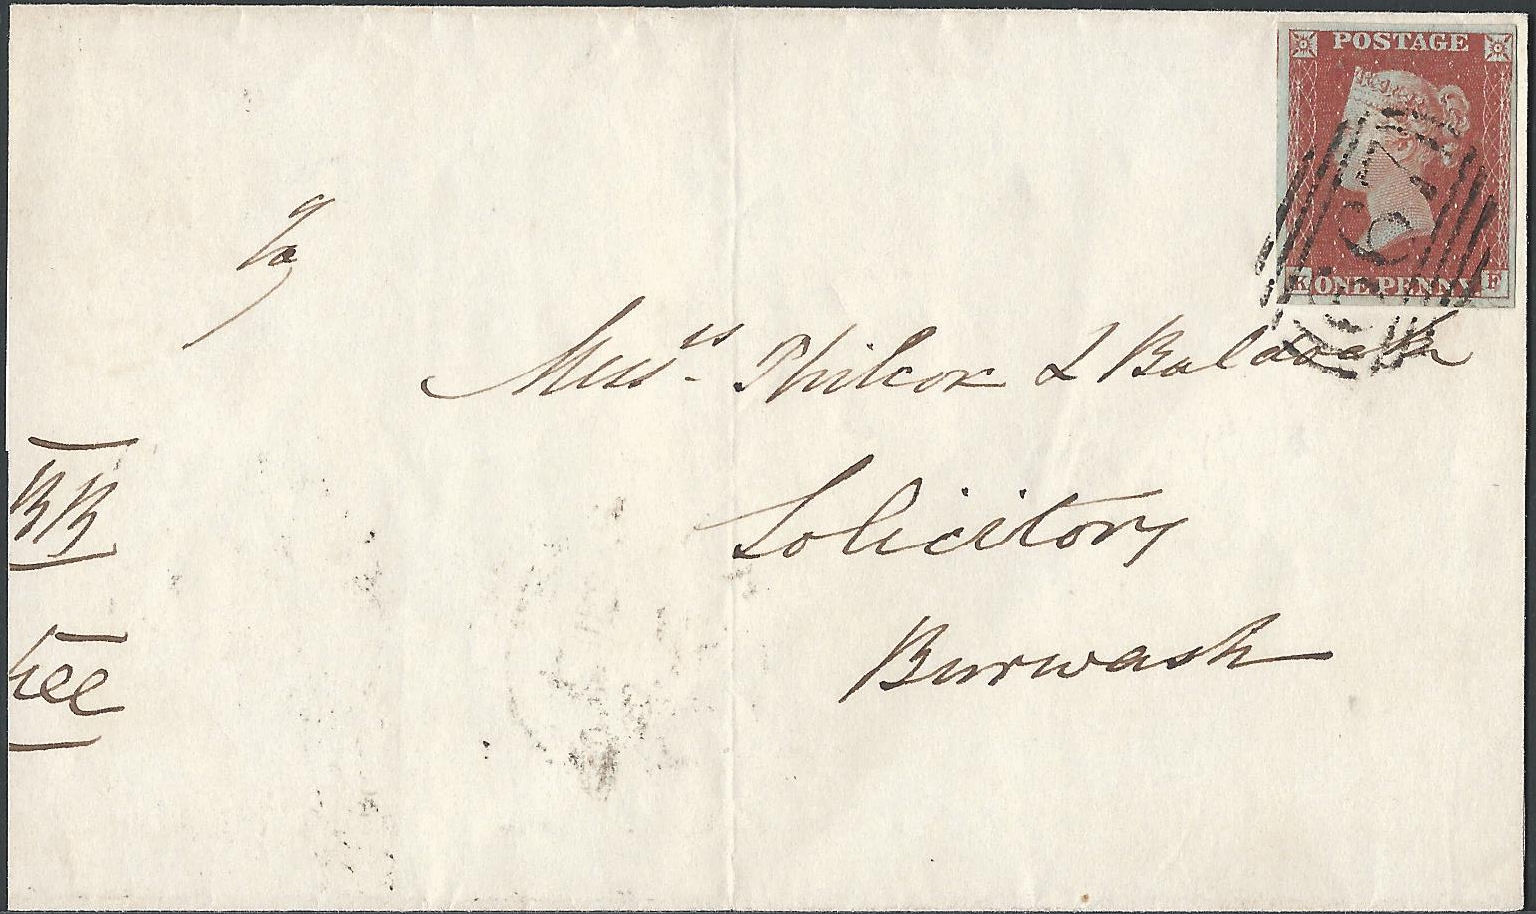 POSTAGE
K ONE PENNY F
To
Messrs Philcox & Baldock
Solicitors
Burwash